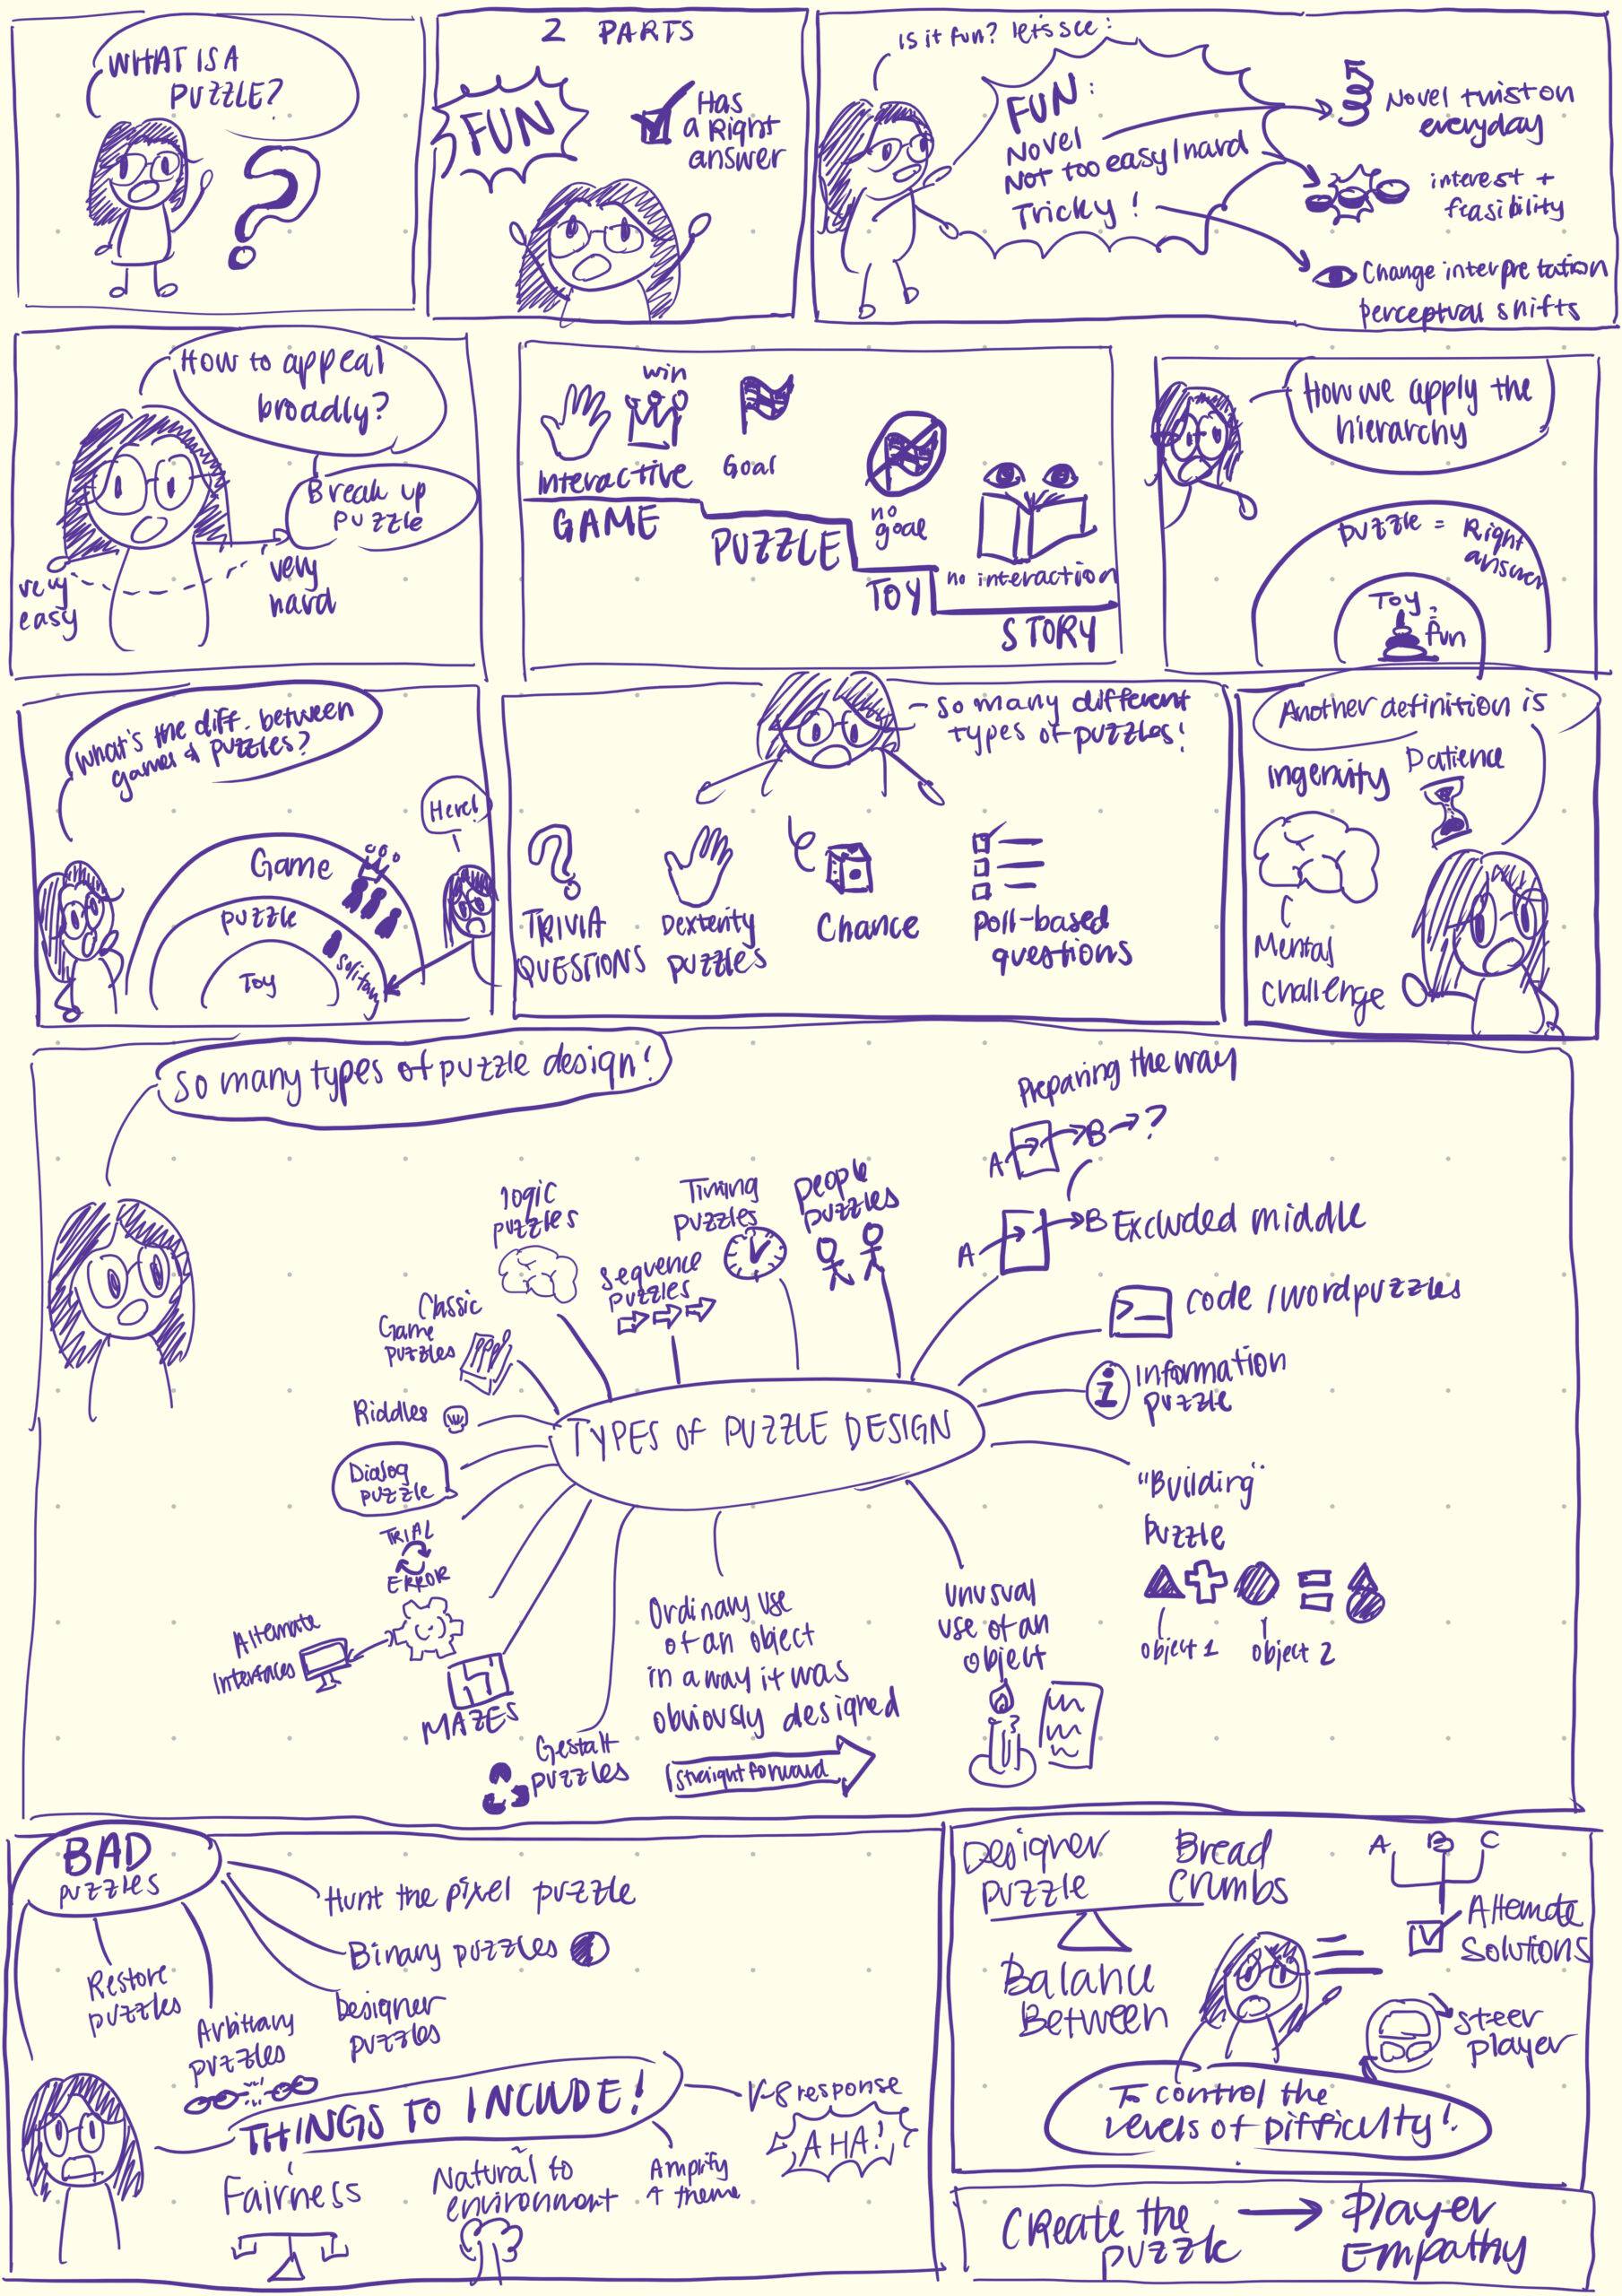 WHAT IS A
PUZZLE?
2 PARTS
FUN
Has
a Right
answer
Is it fun? let's see:
FUN:
Novel
Not too easy/hard
Tricky!
Novel twist on
everyday
interest +
feasibility
Change interpretation
perceptual shifts
How to appeal
broadly?
Break up
puzzle
very
easy
very
hard
win
Interactive
GAME
Goal
PUZZLE
no
goal
TOY
no interaction
STORY
How we apply the
hierarchy
puzzle = Right
answer
Toy
= fun
What's the diff. between
games & puzzles?
Here!
Game
puzzle
Toy
solitary
so many different
types of puzzles!
TRIVIA
QUESTIONS
Dexterity
puzzles
Chance
poll-based
questions
Another definition is
ingenuity
Patience
Mental
challenge
so many types of puzzle design!
Preparing the way
A B ?
logic
puzzles
Timing
puzzles
people
puzzles
A B Excluded middle
sequence
puzzles
Classic
Game
puzzles
>_ code / word puzzles
i Information
puzzle
Riddles
TYPES OF PUZZLE DESIGN
Dialog
puzzle
"Building"
puzzle
TRIAL
ERROR
object 1
object 2
Alternate
interfaces
MAZES
Gestalt
puzzles
Ordinary use
of an object
in a way it was
obviously designed
straight forward
unusual
use of an
object
BAD
puzzles
Hunt the pixel puzzle
Binary puzzles
Restore
puzzles
Arbitrary
puzzles
Designer
puzzles
THINGS TO INCLUDE!
V-8 response
AHA!
Fairness
Natural to
environment
Amplify
theme
Designer
puzzle
Bread
Crumbs
Balance
Between
A B C
Alternate
Solutions
steer
player
To control the
levels of difficulty!
Create the
puzzle
Player
Empathy